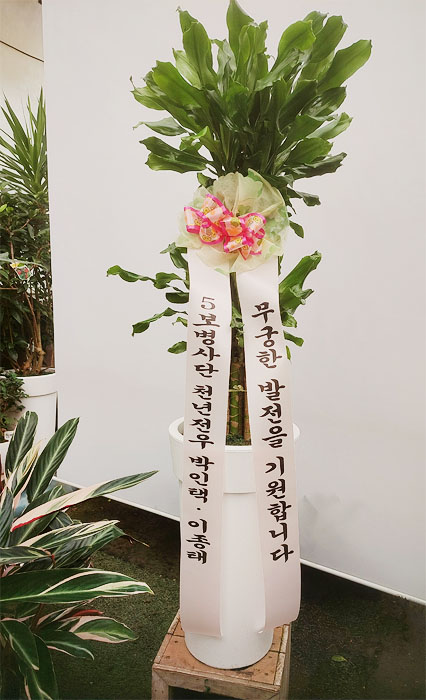 무궁한 발전을 기원합니다
5보병사단 천년전우 박인택 · 이종태